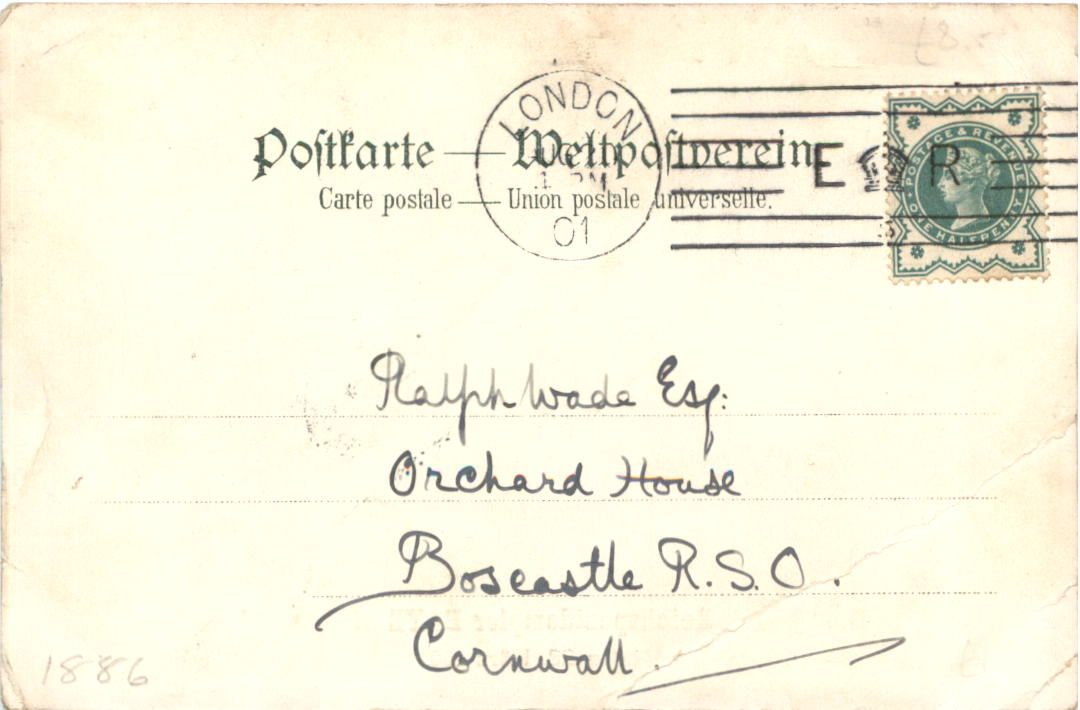 £8.-
Postkarte — Weltpostverein.
Carte postale — Union postale universelle.
LONDON
1 PM
01
E R
POSTAGE & REVENUE
ONE HALFPENNY
Ralph Wade Esq:
Orchard House
Boscastle R.S.O.
Cornwall.
1886